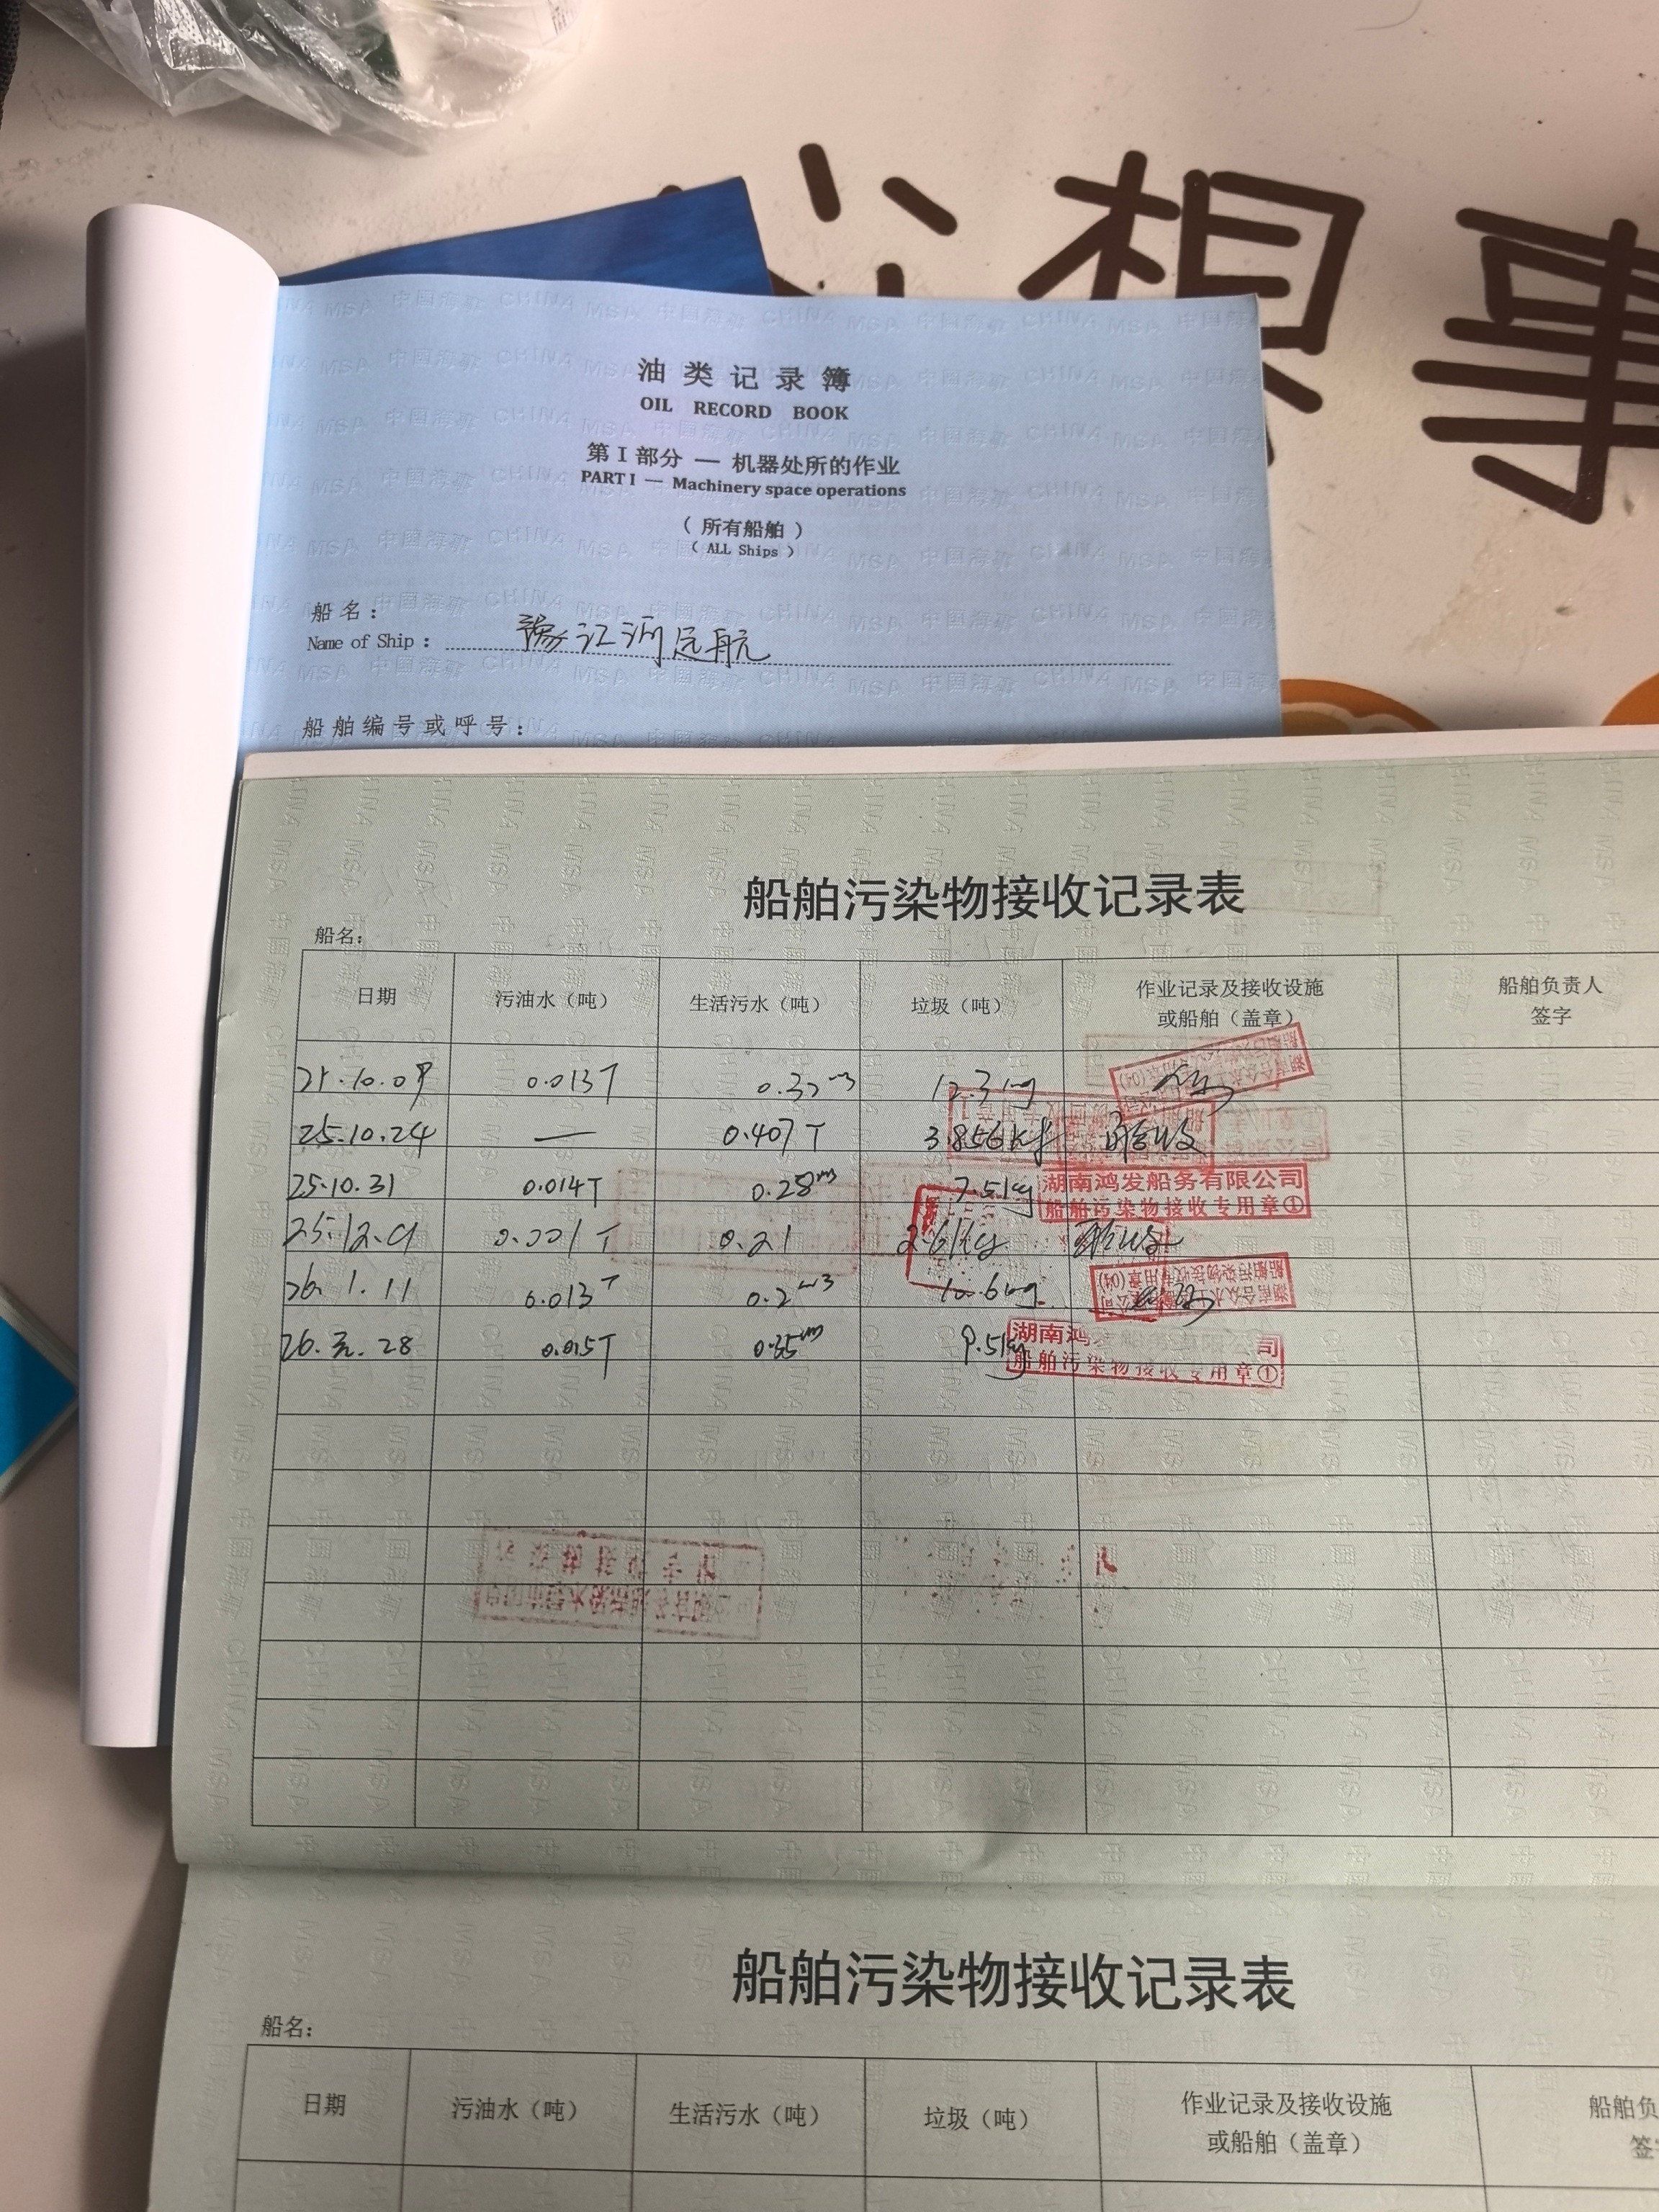 想事
油类记录簿
OIL RECORD BOOK
第 I 部分 — 机器处所的作业
PART I — Machinery space operations
（所有船舶）
（ALL Ships）
船名：
Name of Ship： 豫江河远航
船舶编号或呼号：
船舶污染物接收记录表
船名：
日期 污油水（吨） 生活污水（吨） 垃圾（吨） 作业记录及接收设施或船舶（盖章） 船舶负责人签字
25.10.09 0.013T 0.32m3 12.3kg
25.10.24 — 0.407T 3.856kg 验收
25.10.31 0.014T 0.28m 7.51kg 湖南鸿发船务有限公司
船舶污染物接收专用章①
25.12.9 0.001T 0.21 2.61kg 验收
26.1.11 0.013T 0.2m3 10.6kg
26.元.28 0.015T 0.35m 9.51kg 湖南鸿 司
船舶污染物接收专用章①
船舶污染物接收记录表
船名：
日期 污油水（吨） 生活污水（吨） 垃圾（吨） 作业记录及接收设施或船舶（盖章） 船舶负